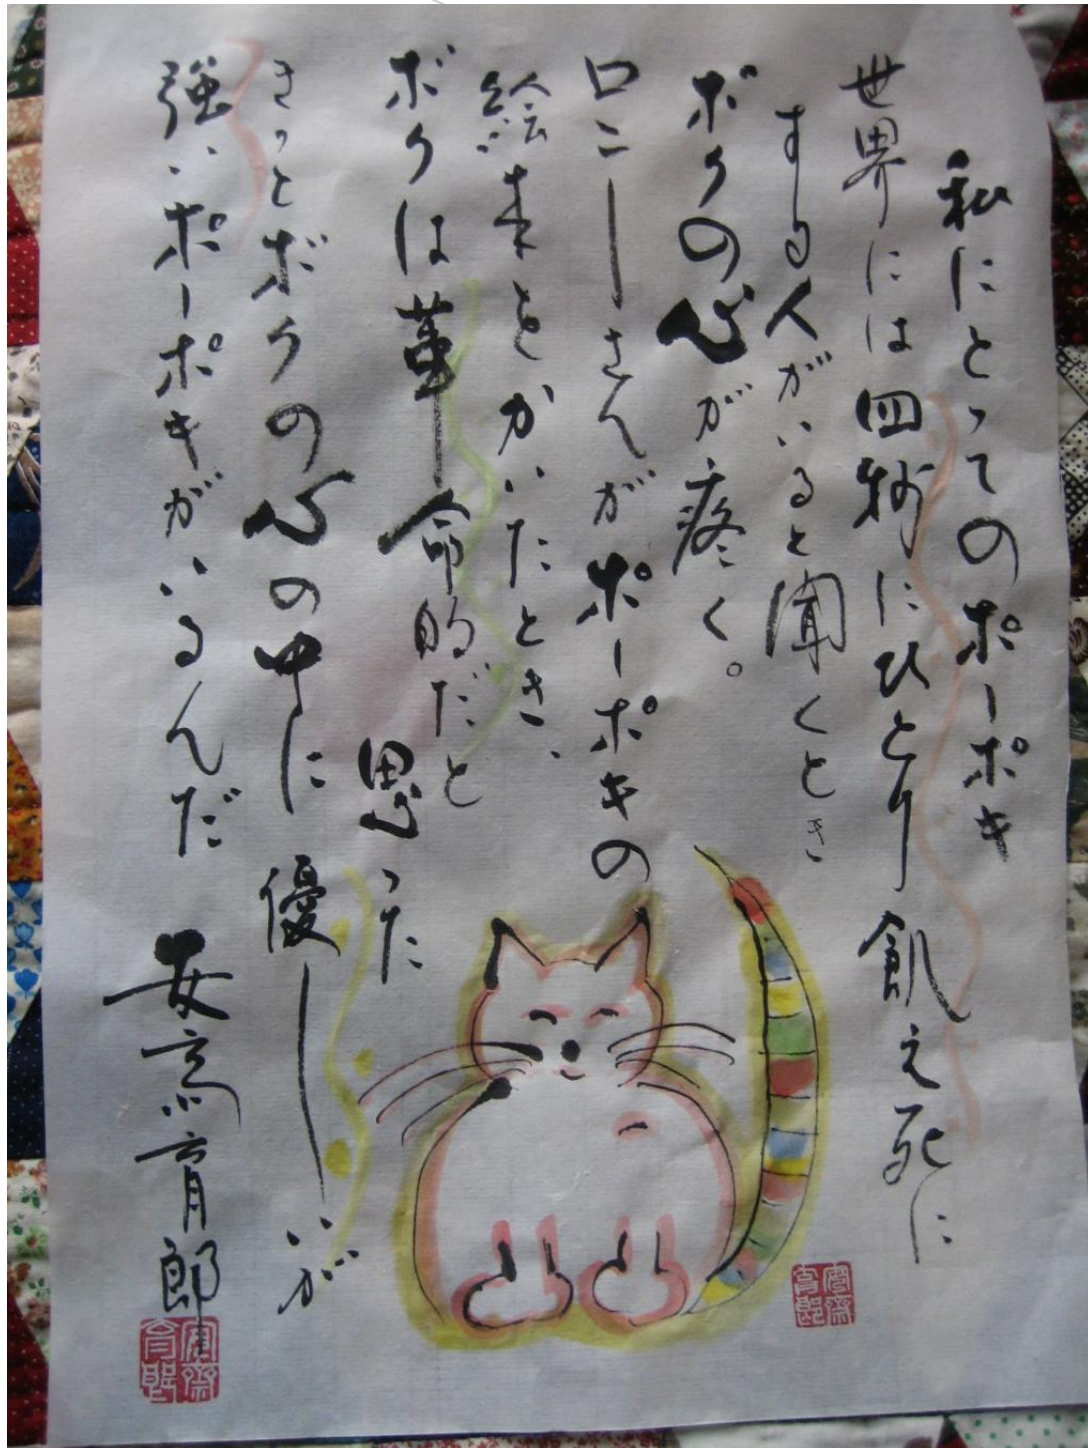 私にとってのポーポキ
世界には四秒にひとり飢え死に
する人がいると聞くとき
ボクの心が疼く。
ロニーさんがポーポキの
絵本をかいたとき、
ボクは革命的だと
思った
きっとボクの心の中に優しいが
強いポーポキがいるんだ
安斎育郎
安齋
育郎
安齋
育郎